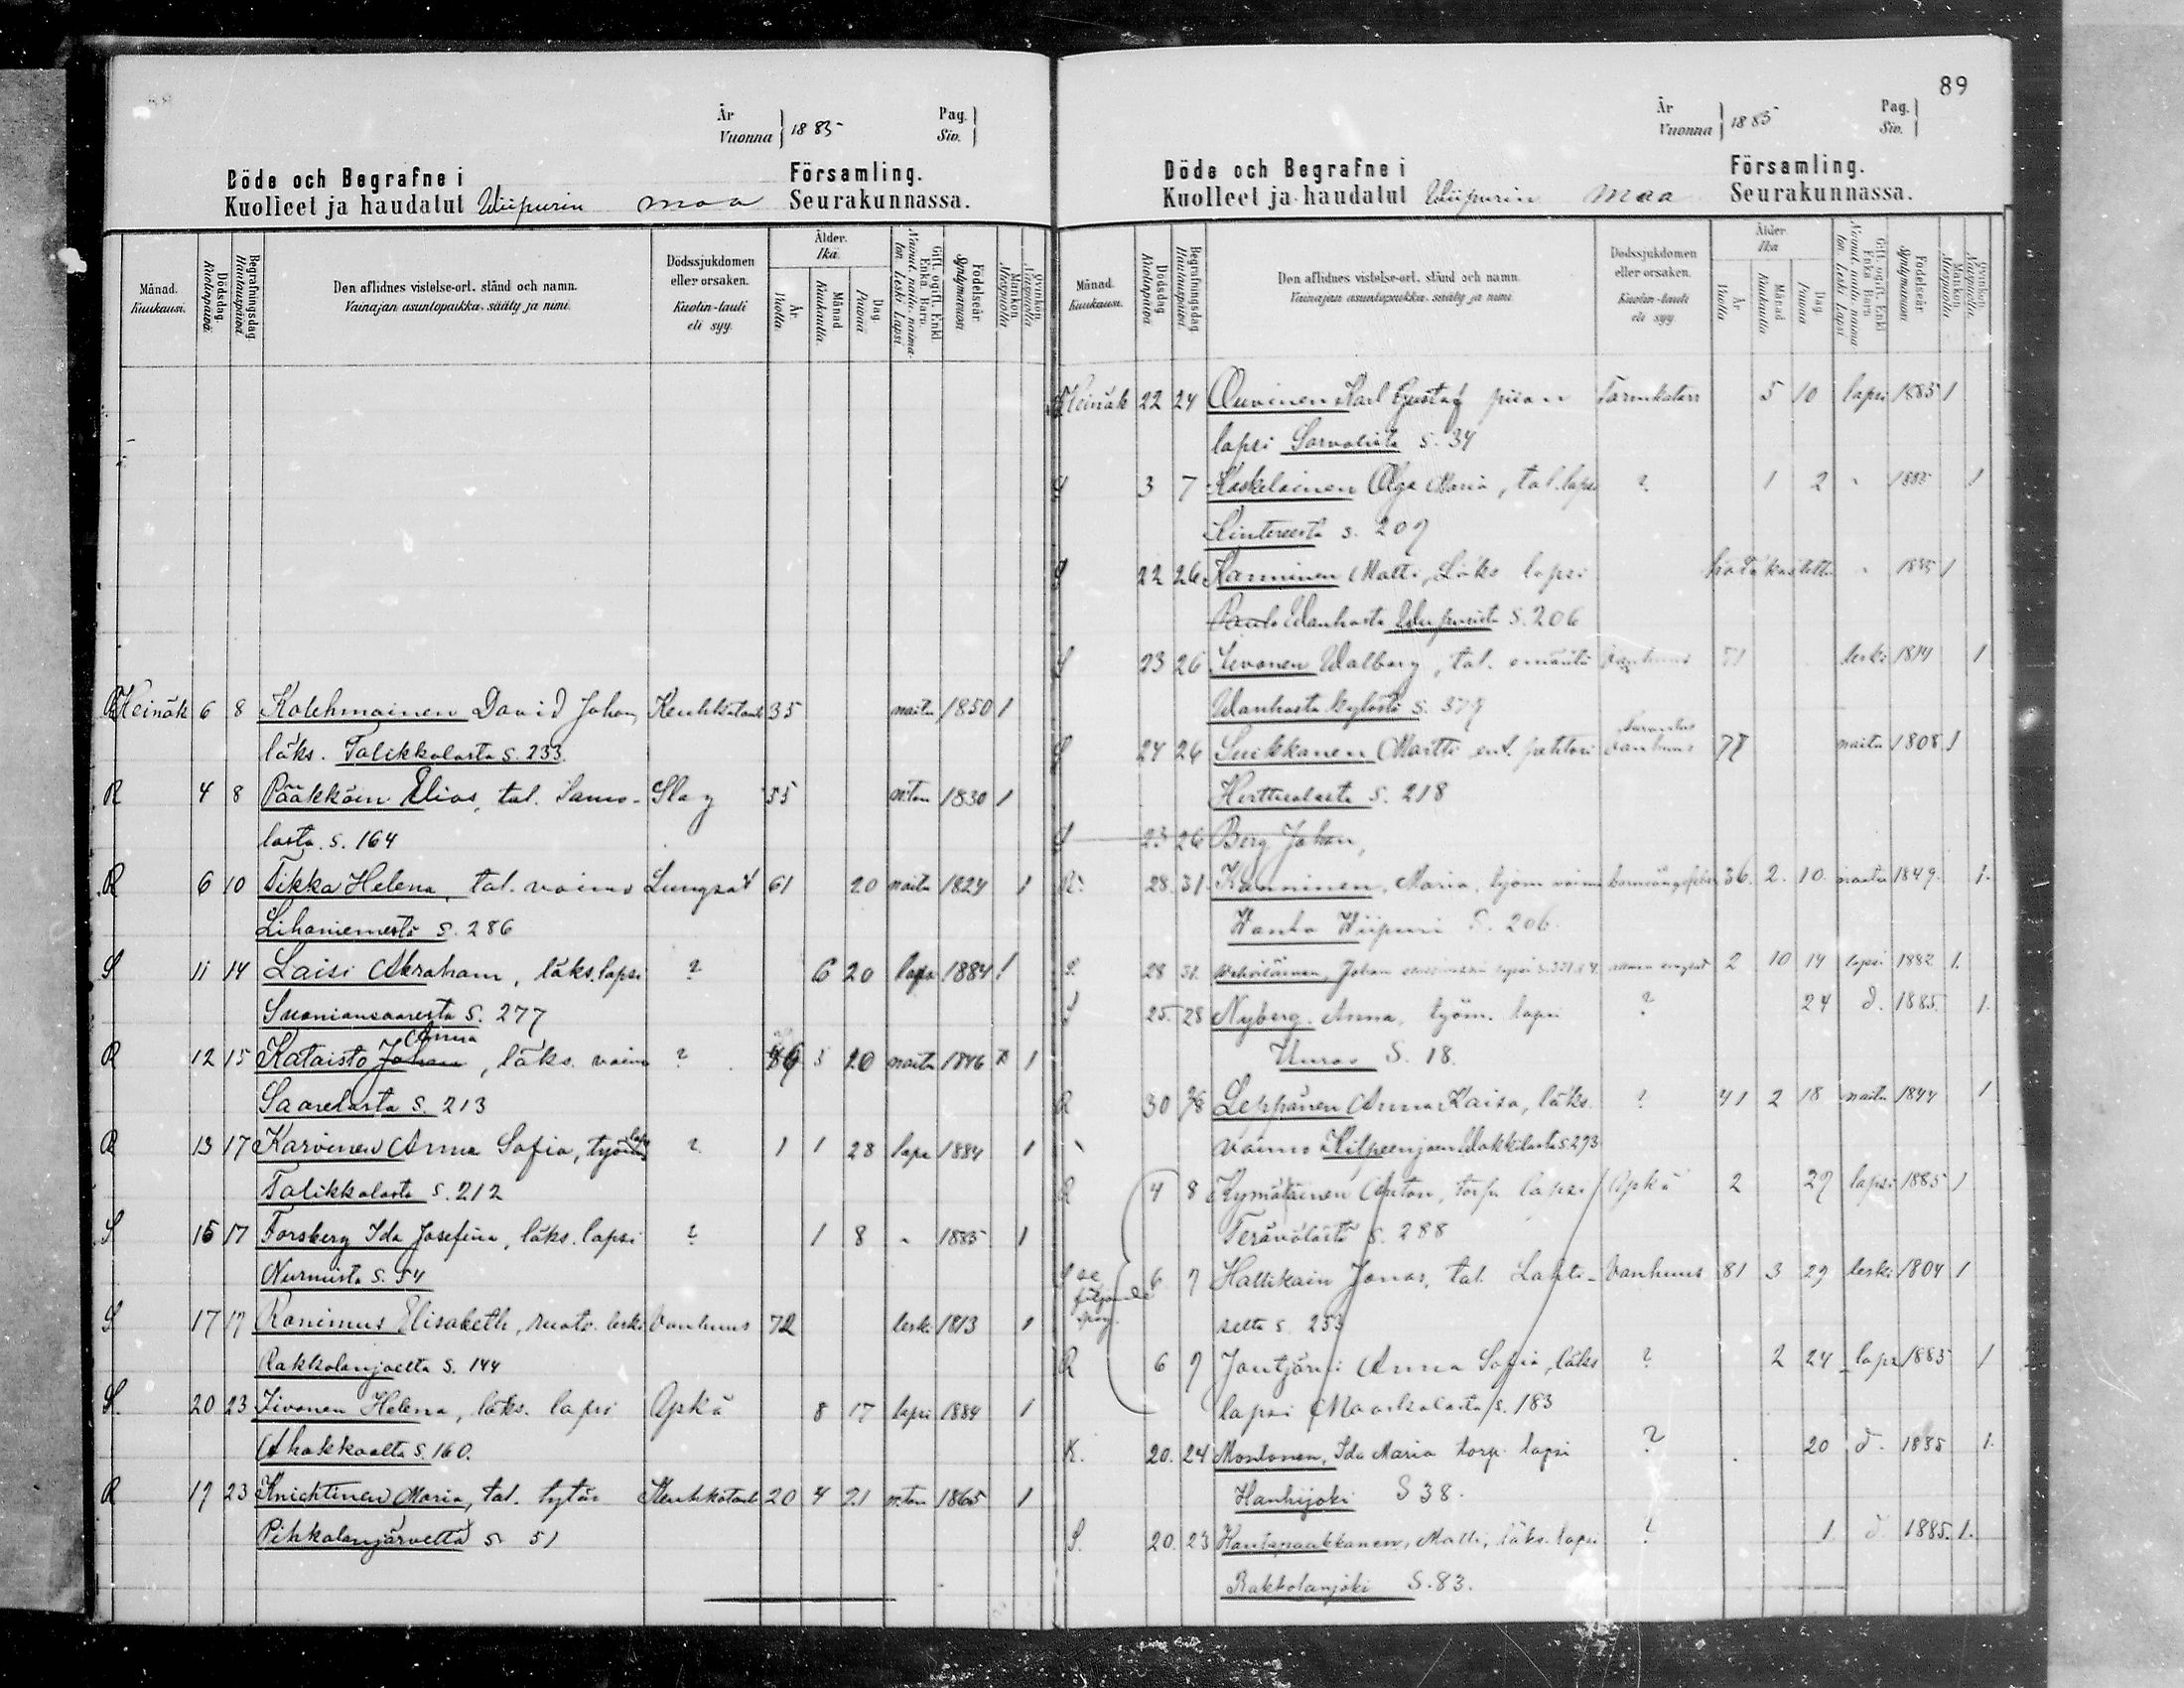 År
Vuonna } 1885 Pag.
Siv. }
Döde och Begrafne i Församling.
Kuolleet ja haudatut Wiipurin maa Seurakunnassa.
Månad.
Kuukausi.
Dödsdag.
Kuolinpäivä
Begrafningsdag
Hautauspäivä.
Den aflidnes vistelse-ort, stånd och namn.
Vainajan asuntopaikka, sääty ja nimi.
Dödssjukdomen
eller orsaken.
Kuolin-tauti
eli syy.
Ålder.
Ikä.
År.
Vuotta.
Månad
Kuukautta.
Dag.
Päivää
Gift, ogift, Enkl.
Enka, Barn.
Nainut, naitu, naima-
ton, Leski, Lapsi
Födelseår.
Syntymävuosi
Mankön.
Miespuolia
Qvinkön.
Naispuolia
R Heinäk 6 8 Kolehmainen David Johan, Keuhkotauti 35 naitu 1850 1
läks. Talikkalasta s. 233.
R 4 8 Pääkköin Elias, tal. Samo- Slag 55 n:ton 1830 1
lasta s. 164
R 6 10 Tikka Helena tal. vaimo Lungsot 61 20 naitu 1824 1
Lihaniemestä s. 286
S 11 14 Laisi Abraham, läks. lapsi ? 6 20 lapsi 1884 1
Suonionsaaresta s. 277
Anna
R 12 15 Kataisto Johan, läks. vaimo ? 3 20 naitu 1846 1
Saarelasta s. 213
R 13 17 Karvinen Anna Sofia, työm lapsi ? 1 1 28 lapsi 1884 1
Talikkalasta s. 212
S 15 17 Forsberg Ida Josefina, läks. lapsi ? 1 8 " 1885 1
Nurmista s. 54
S 17 19 Ranimus Elisabeth, ruotu leski Vanhuus 72 leski 1813 1
Rakkolanjoelta s. 144
S. 20 23 Iivonen Helena, läks. lapsi Apkä 8 17 lapsi 1884 1
Ahokkaalta s. 160.
R 17 23 Knichtinen Maria, tal. tytär Keuhkotauti 20 4 21 n:ton 1865 1
Pihkalanjärveltä s. 51
89
År
Vuonna } 1885 Pag.
Siv. }
Döde och Begrafne i Församling.
Kuolleet ja haudatut Wiipurin maa Seurakunnassa.
Månad.
Kuukausi.
Dödsdag
Kuolinpäivä
Begrafningsdag
Hautauspäivä.
Den aflidnes vistelse-ort, stånd och namn.
Vainajan asuntopaikka, sääty ja nimi.
Dödssjukdomen
eller orsaken.
Kuolin-tauti
eli syy.
Ålder.
Ikä
År
Vuotta
Månad
Kuukautta
Dag
Päivää
Gift, ogift, Enkl.
Enka, Barn
Nainut, naitu, naima-
ton, Leski, Lapsi
Födelseår
Syntymävuosi
Mankön
Miespuolia
Qvinkön
Naispuolia
Heinäk 22 24 Ouvinen Karl Gustaf piian Tarmkatarr 5 10 lapsi 1885 1
lapsi Sorvalista s. 34
S 3 7 Koskelainen Olga Maria, tal. lapsi ? 1 2 " 1885 1
Kintereestä s. 207
S 22 26 Kanninen Matti, Läks lapsi hätäkastettu " 1885 1
Wanhasta Wiipurista s. 206
S 23 26 Ilvonen Walborg, tal. emäntä Vanhuus 71 leski 1814 1
Wanhasta kylästä s. 379
S 24 26 Suikkanen Martti ent. Vanhuus 77 naitu 1808 1
Herttualasta s. 218
S 23 26 Berg Johan,
R. 28. 31. Kanninen, Maria, työm vaimo barnsängsfeber 36. 2. 10. naitu 1849. 1.
Wanha Wiipuri S. 206.
S. 28 31. Johan lapsi 2 10 14 lapsi 1882 1.
S 25. 28 Nyberg. Anna, työm. lapsi ? 24 d. 1885. 1.
Uuras S. 18.
R 30 Leppänen Anna Kaisa, läks. ? 41 2 18 naitu 1844 1
vaimo Kilpeenjoen s. 293
R 4 8 Kymäläinen Anton, torp. lapsi Apkä 2 27 lapsi 1885 1
Terävälästä s. 288
S se
följande
pag. 6 9 Hallikain Jonas, tal. Lahti- Vanhuus 81 3 29 leski 1804 1
selta s. 253
R 6 9 Joutjärvi Anna Sofia, läks ? 2 24 lapsi 1885 1
lapsi Maaskolasta s. 183
K. 20. 24 Montonen, Ida Maria torp. lapsi ? 20 d. 1885 1.
Hanhijoki S 38.
S. 20. 23 Hantapaakkanen, Matti, läks. lapsi ? 1 d 1885. 1.
Rakkolanjoki S. 83.